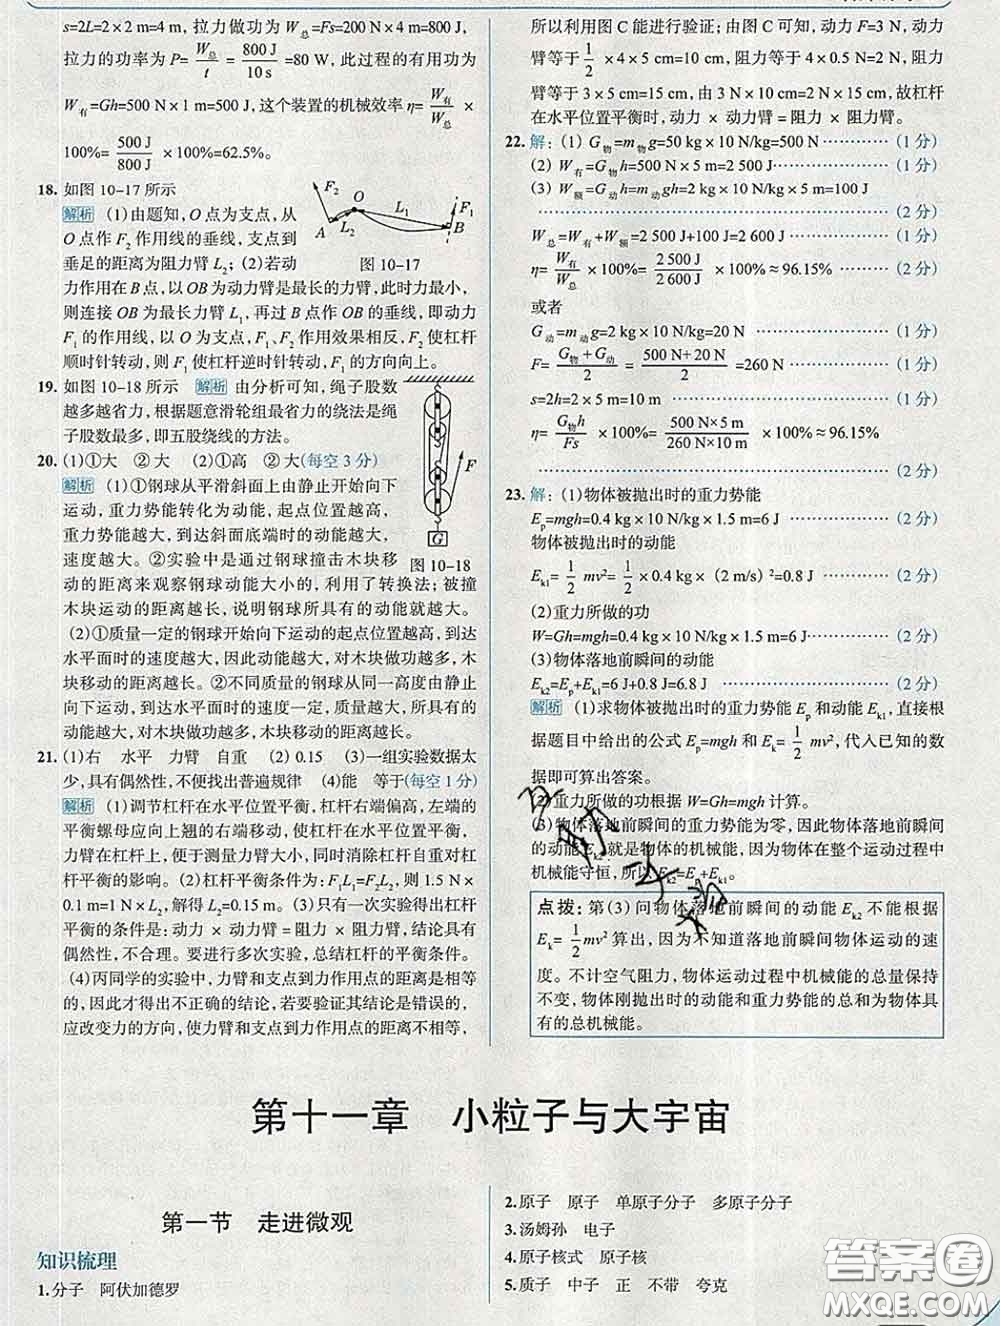 s=2L=2×2 m=4 m，拉力做功为 W总=Fs=200 N×4 m=800 J，
拉力的功率为 P=W总/t=800 J/10 s=80 W，此过程的有用功为
W有=Gh=500 N×1 m=500 J，这个装置的机械效率 η=W有/W总×
100%=500 J/800 J×100%=62.5%。
18. 如图 10-17 所示
解析 (1)由题知，O 点为支点，从
O 点作 F2 作用线的垂线，支点到
垂足的距离为阻力臂 L2；(2)若动
力作用在 B 点，以 OB 为动力臂是最长的力臂，此时力最小，
则连接 OB 为最长力臂 L1，再过 B 点作 OB 的垂线，即动力
F1 的作用线，以 O 为支点，F1、F2 作用效果相反，F2 使杠杆
顺时针转动，则 F1 使杠杆逆时针转动，F1 的方向向上。
F2 O L1 F1 A L2 B
图 10-17
19. 如图 10-18 所示 解析 由分析可知，绳子股数
越多越省力，根据题意滑轮组最省力的绕法是绳
子股数最多，即五股绕线的方法。
20. (1)①大 ②大 (2)①高 ②大(每空 3 分)
解析 (1)①钢球从平滑斜面上由静止开始向下
运动，重力势能转化为动能，起点位置越高，
重力势能越大，到达斜面底端时的动能越大，
速度越大。②实验中是通过钢球撞击木块移
F
G
图 10-18
动的距离来观察钢球动能大小的，利用了转换法；被撞
木块运动的距离越长，说明钢球所具有的动能就越大。
(2)①质量一定的钢球开始向下运动的起点位置越高，到达
水平面时的速度越大，因此动能越大，对木块做功越多，木
块移动的距离越长。②不同质量的钢球从同一高度由静止
向下运动，到达水平面时的速度一定，质量越大，所具有的
动能越大，对木块做功越多，木块移动的距离越长。
21. (1)右 水平 力臂 自重 (2)0.15 (3)一组实验数据太
少，具有偶然性，不便找出普遍规律 (4)能 等于(每空 1 分)
解析 (1)调节杠杆在水平位置平衡，杠杆右端偏高，左端的
平衡螺母应向上翘的右端移动，使杠杆在水平位置平衡，
力臂在杠杆上，便于测量力臂大小，同时消除杠杆自重对杠
杆平衡的影响。(2)杠杆平衡条件为：F1L1=F2L2，则 1.5 N×
0.1 m=1 N×L2，解得 L2=0.15 m。(3)只有一次实验得出杠杆
平衡的条件是：动力×动力臂=阻力×阻力臂，结论具有
偶然性，不合理。要进行多次实验，总结杠杆的平衡条件。
(4)丙同学的实验中，力臂和支点到力作用点的距离是相等
的，因此才得出不正确的结论，若要验证其结论是错误的，
应改变力的方向，使力臂和支点到力作用点的距离不相等，
所以利用图 C 能进行验证；由图 C 可知，动力 F=3 N，动力
臂等于1/2×4×5 cm=10 cm，阻力等于 4×0.5 N=2 N，阻力
臂等于 3×5 cm=15 cm，由 3 N×10 cm=2 N×15 cm，故杠杆
在水平位置平衡时，动力×动力臂=阻力×阻力臂。
22. 解：(1)G物=m物g=50 kg×10 N/kg=500 N……(1 分)
(2) W有=G物h=500 N×5 m=2 500 J……(1 分)
(3) W额=G动h=m动gh=2 kg×10 N/kg×5 m=100 J
……(2 分)
W总=W有+W额=2 500 J+100 J=2 600 J……(1 分)
η=W有/W总×100%=2 500 J/2 600 J×100%≈96.15%……(2 分)
或者
G动=m动g=2 kg×10 N/kg=20 N……(1 分)
F=(G物+G动)/2=(500 N+20 N)/2=260 N……(1 分)
s=2h=2×5 m=10 m……(1 分)
η=G物h/Fs×100%=(500 N×5 m)/(260 N×10 m)×100%≈96.15%
……(2 分)
23. 解：(1)物体被抛出时的重力势能
Ep=mgh=0.4 kg×10 N/kg×1.5 m=6 J……(2 分)
物体被抛出时的动能
Ek1=1/2 mv²=1/2×0.4 kg×(2 m/s)²=0.8 J……(2 分)
(2)重力所做的功
W=Gh=mgh=0.4 kg×10 N/kg×1.5 m=6 J……(2 分)
(3)物体落地前瞬间的动能
Ek2=Ep+Ek1=6 J+0.8 J=6.8 J……(2 分)
解析 (1)求物体被抛出时的重力势能 Ep 和动能 Ek1，直接根
据题目中给出的公式 Ep=mgh 和 Ek=1/2 mv²，代入已知的数
据即可算出答案。
(2)重力所做的功根据 W=Gh=mgh 计算。
(3)物体落地前瞬间的重力势能为零，因此物体落地前瞬间
的动能 Ek2 就是物体的机械能，因为物体在整个运动过程中
机械能守恒，所以 Ek2=Ep+Ek1。
点拨：第(3)问物体落地前瞬间的动能 Ek2 不能根据
Ek=1/2mv²算出，因为不知道落地前瞬间物体运动的速
度。不计空气阻力，物体运动过程中机械能的总量保持
不变，物体刚抛出时的动能和重力势能的总和为物体具
有的总机械能。
第十一章 小粒子与大宇宙
第一节 走进微观
知识梳理
1. 分子 阿伏加德罗
2. 原子 原子 单原子分子 多原子分子
3. 汤姆孙 电子
4. 原子核式 原子核
5. 质子 中子 正 不带 夸克
答案圈
MXQE.COM